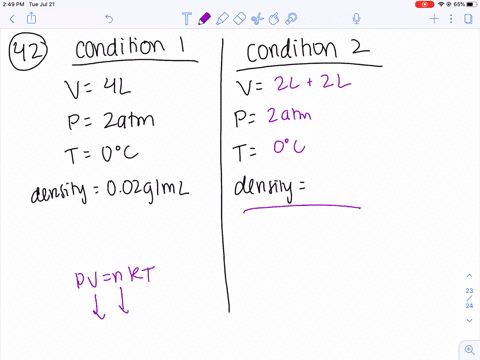 2:49 PM Tue Jul 21
65%
42
Condition 1
V = 4L
P = 2atm
T = 0°C
density = 0.02g/mL
PV=nRT
Condition 2
V = 2L + 2L
P = 2atm
T = 0°C
density =
23
/
24